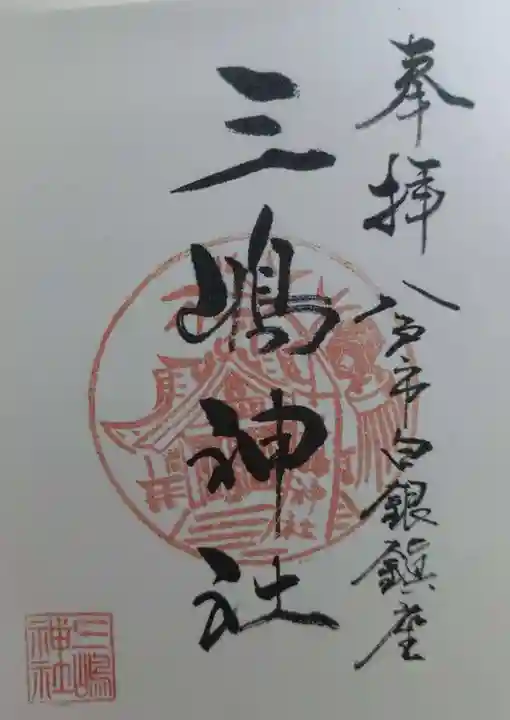 奉拝 八戸市白銀鎮座
三嶋神社
三嶋
神社